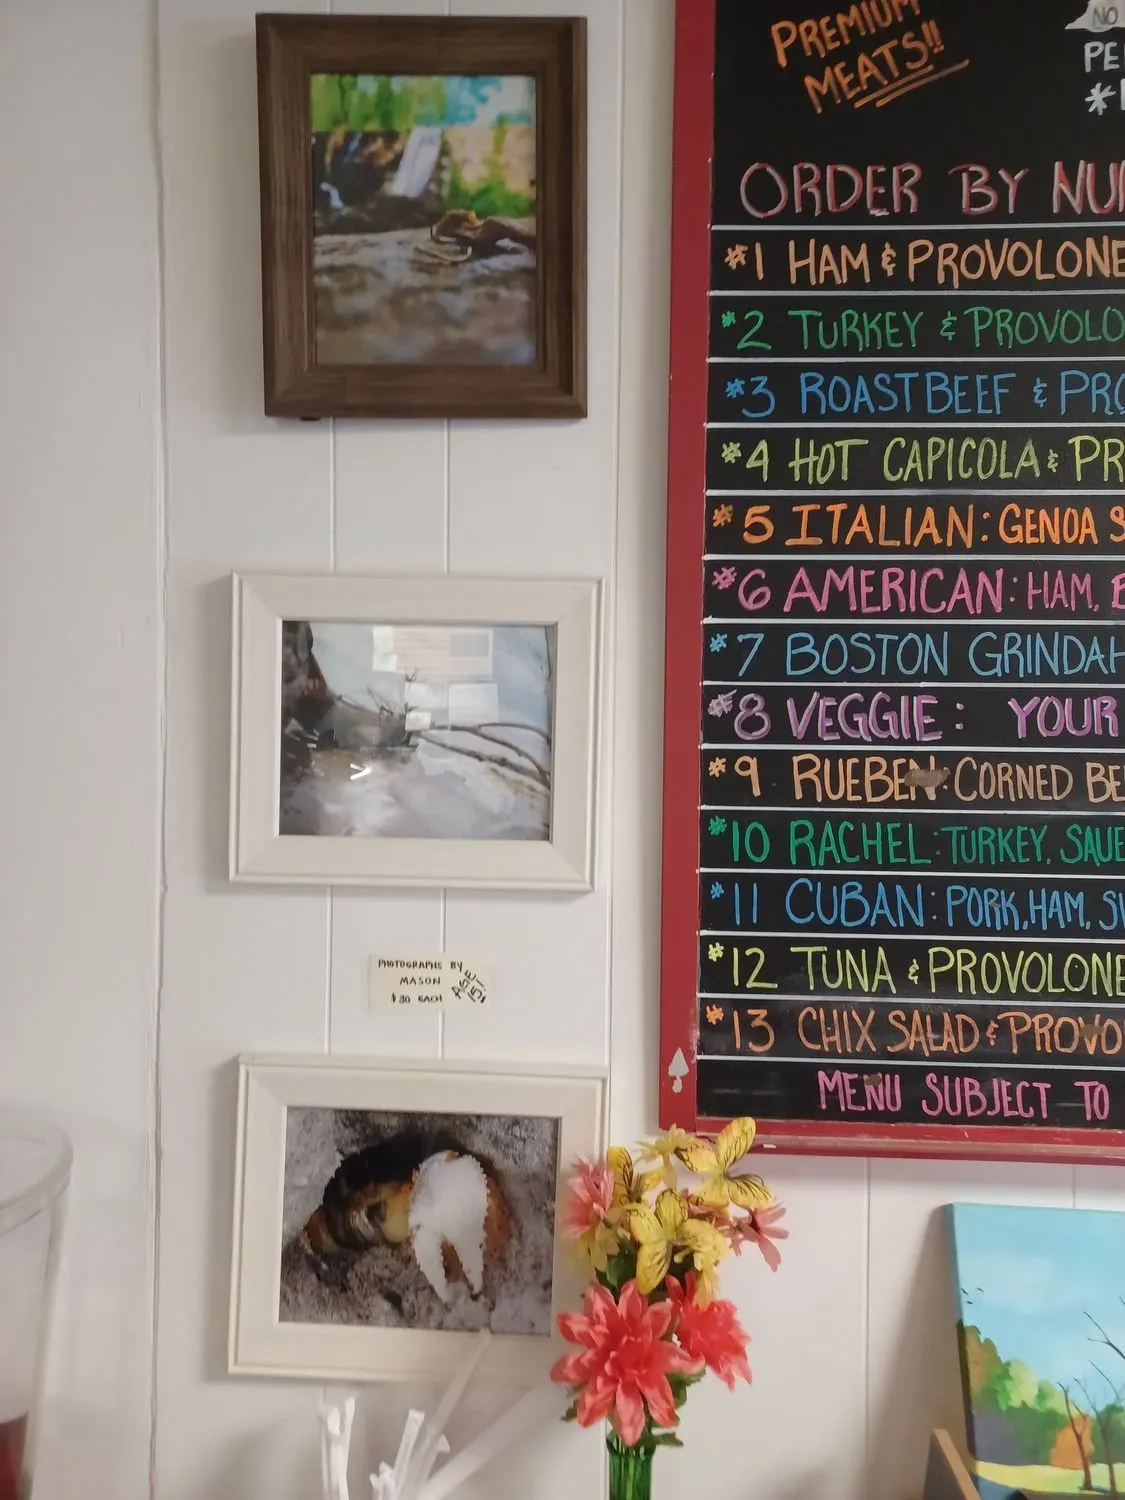 PREMIUM
MEATS!!
NO
ORDER BY
#1 HAM & PROVOLONE
#2 TURKEY & PROVOLO
#3 ROASTBEEF & PRO
#4 HOT CAPICOLA & PR
#5 ITALIAN: GENOA S
#6 AMERICAN: HAM, B
#7 BOSTON GRINDAH
#8 VEGGIE: YOUR
#9 RUEBEN: CORNED BE
#10 RACHEL: TURKEY, SAUE
#11 CUBAN: PORK, HAM, SW
#12 TUNA & PROVOLONE
#13 CHIX SALAD & PROVO
MENU SUBJECT TO
PHOTOGRAPHS BY
MASON
$30 EACH